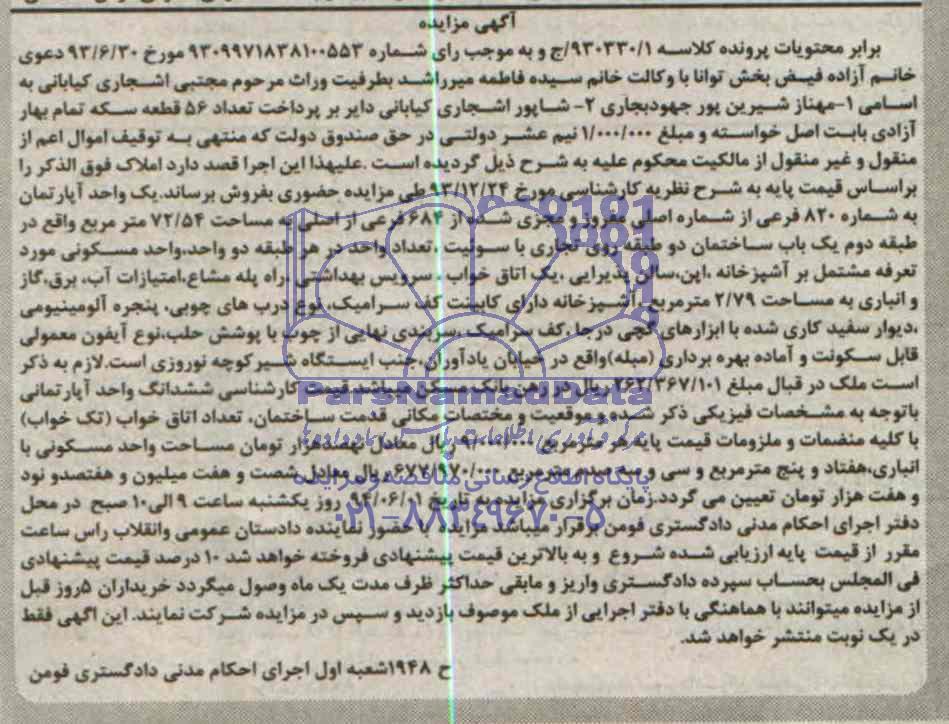 آگهی مزایده
برابر محتویات پرونده کلاسه ۹۳۰۳۳۰/۱/ج و به موجب رای شماره ۹۳۰۹۹۷۱۸۳۸۱۰۰۵۵۳ مورخ ۹۳/۶/۳۰ دعوی
خانم آزاده فیض بخش توانا با وکالت خانم سیده فاطمه میرراشد بطرفیت وراث مرحوم مجتبی اشجاری کیابانی به
اسامی ۱-مهناز شیرین پور جهودبجاری ۲- شاپور اشجاری کیابانی دایر بر پرداخت تعداد ۵۶ قطعه سکه تمام بهار
آزادی بابت اصل خواسته و مبلغ ۱/۰۰۰/۰۰۰ نیم عشر دولتی در حق صندوق دولت که منتهی به توقیف اموال اعم از
منقول و غیر منقول از مالکیت محکوم علیه به شرح ذیل گردیده است .علیهذا این اجرا قصد دارد املاک فوق الذکر را
براساس قیمت پایه به شرح نظریه کارشناسی مورخ ۹۳/۱۲/۲۴ طی مزایده حضوری بفروش برساند.یک واحد آپارتمان
به شماره ۸۲۰ فرعی از شماره اصلی مفروز و مجزی شده از ۶۸۴ فرعی از اصلی به مساحت ۷۲/۵۴ متر مربع واقع در
طبقه دوم یک باب ساختمان دو طبقه روی تجاری با سوئیت ،تعداد واحد در هر طبقه دو واحد،واحد مسکونی مورد
تعرفه مشتمل بر آشپزخانه ،اپن،سالن پذیرایی ،یک اتاق خواب ، سرویس بهداشتی ،راه پله مشاع،امتیازات آب، برق،گاز
و انباری به مساحت ۲/۷۹ مترمربع ،آشپزخانه دارای کابینت کف سرامیک، نوع درب های چوبی، پنجره آلومینیومی
،دیوار سفید کاری شده با ابزارهای گچی درجا ،کف سرامیک ،سربندی نهایی از چوب با پوشش حلب،نوع آیفون معمولی
قابل سکونت و آماده بهره برداری (مبله)واقع در خیابان یادآوران،جنب ایستگاه شیرکوچه نوروزی است.لازم به ذکر
است ملک در قبال مبلغ ۲۶۲/۳۶۷/۱۰۱ ریال در رهن بانک مسکن میباشد.قیمت کارشناسی ششدانگ واحد آپارتمانی
باتوجه به مشخصات فیزیکی ذکر شده و موقعیت و مختصات مکانی قدمت ساختمان، تعداد اتاق خواب (تک خواب)
با کلیه منضمات و ملزومات قیمت پایه هر مترمربع ریال معادل نهصدهزار تومان مساحت واحد مسکونی با
انباری،هفتاد و پنج مترمربع و سی و سه صدم مترمربع ۶۷۷/۹۷۰/۰۰۰ ریال معادل شصت و هفت میلیون و هفتصدو نود
و هفت هزار تومان تعیین می گردد.زمان برگزاری مزایده به تاریخ ۹۴/۰۶/۰۱ روز یکشنبه ساعت ۹ الی ۱۰ صبح در محل
دفتر اجرای احکام مدنی دادگستری فومن برقرار میباشد مزایده با حضور نماینده دادستان عمومی وانقلاب راس ساعت
مقرر از قیمت پایه ارزیابی شده شروع و به بالاترین قیمت پیشنهادی فروخته خواهد شد ۱۰ درصد قیمت پیشنهادی
فی المجلس بحساب سپرده دادگستری واریز و مابقی حداکثر ظرف مدت یک ماه وصول میگردد خریداران ۵روز قبل
از مزایده میتوانند با هماهنگی با دفتر اجرایی از ملک موصوف بازدید و سپس در مزایده شرکت نمایند. این اگهی فقط
در یک نوبت منتشر خواهد شد.
ح ۱۹۴۸شعبه اول اجرای احکام مدنی دادگستری فومن
ParsNamadData
پایگاه اطلاع رسانی مناقصه و مزایده
۰۲۱-۸۸۳۴۹۶۷۰-۵